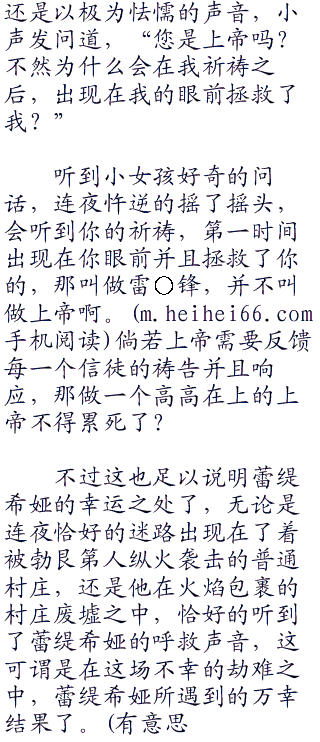 还是以极为怯懦的声音，小
声发问道，“您是上帝吗？
不然为什么会在我祈祷之
后，出现在我的眼前拯救了
我？”
听到小女孩好奇的问
话，连夜忤逆的摇了摇头，
会听到你的祈祷，第一时间
出现在你眼前并且拯救了你
的，那叫做雷○锋，并不叫
做上帝啊。(m.heihei66.com
手机阅读)倘若上帝需要反馈
每一个信徒的祷告并且响
应，那做一个高高在上的上
帝不得累死了？
不过这也足以说明蕾缇
希娅的幸运之处了，无论是
连夜恰好的迷路出现在了着
被勃艮第人纵火袭击的普通
村庄，还是他在火焰包裹的
村庄废墟之中，恰好的听到
了蕾缇希娅的呼救声音，这
可谓是在这场不幸的劫难之
中，蕾缇希娅所遇到的万幸
结果了。(有意思